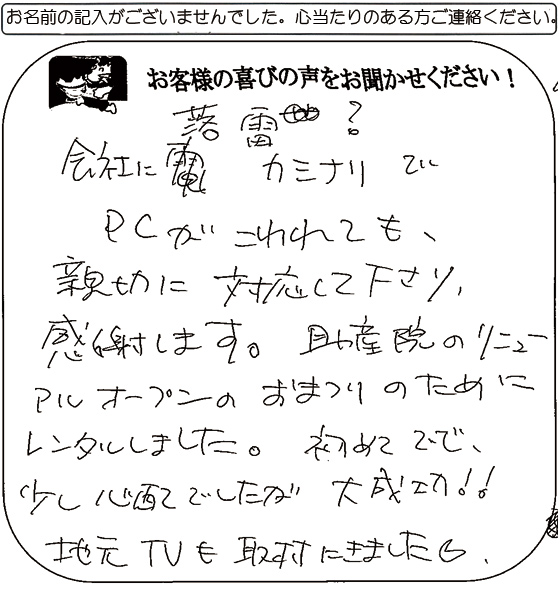 お名前の記入がございませんでした。心当たりのある方ご連絡ください。
お客様の喜びの声をお聞かせください！
落雷？
会社に カミナリで
PCがこわれても、
親切に対応して下さり、
感謝します。助産院のリニュー
アルオープンのおまつりのために
レンタルしました。初めてでで、
少し心配でしたが 大成功！！
地元TVも取材にきました